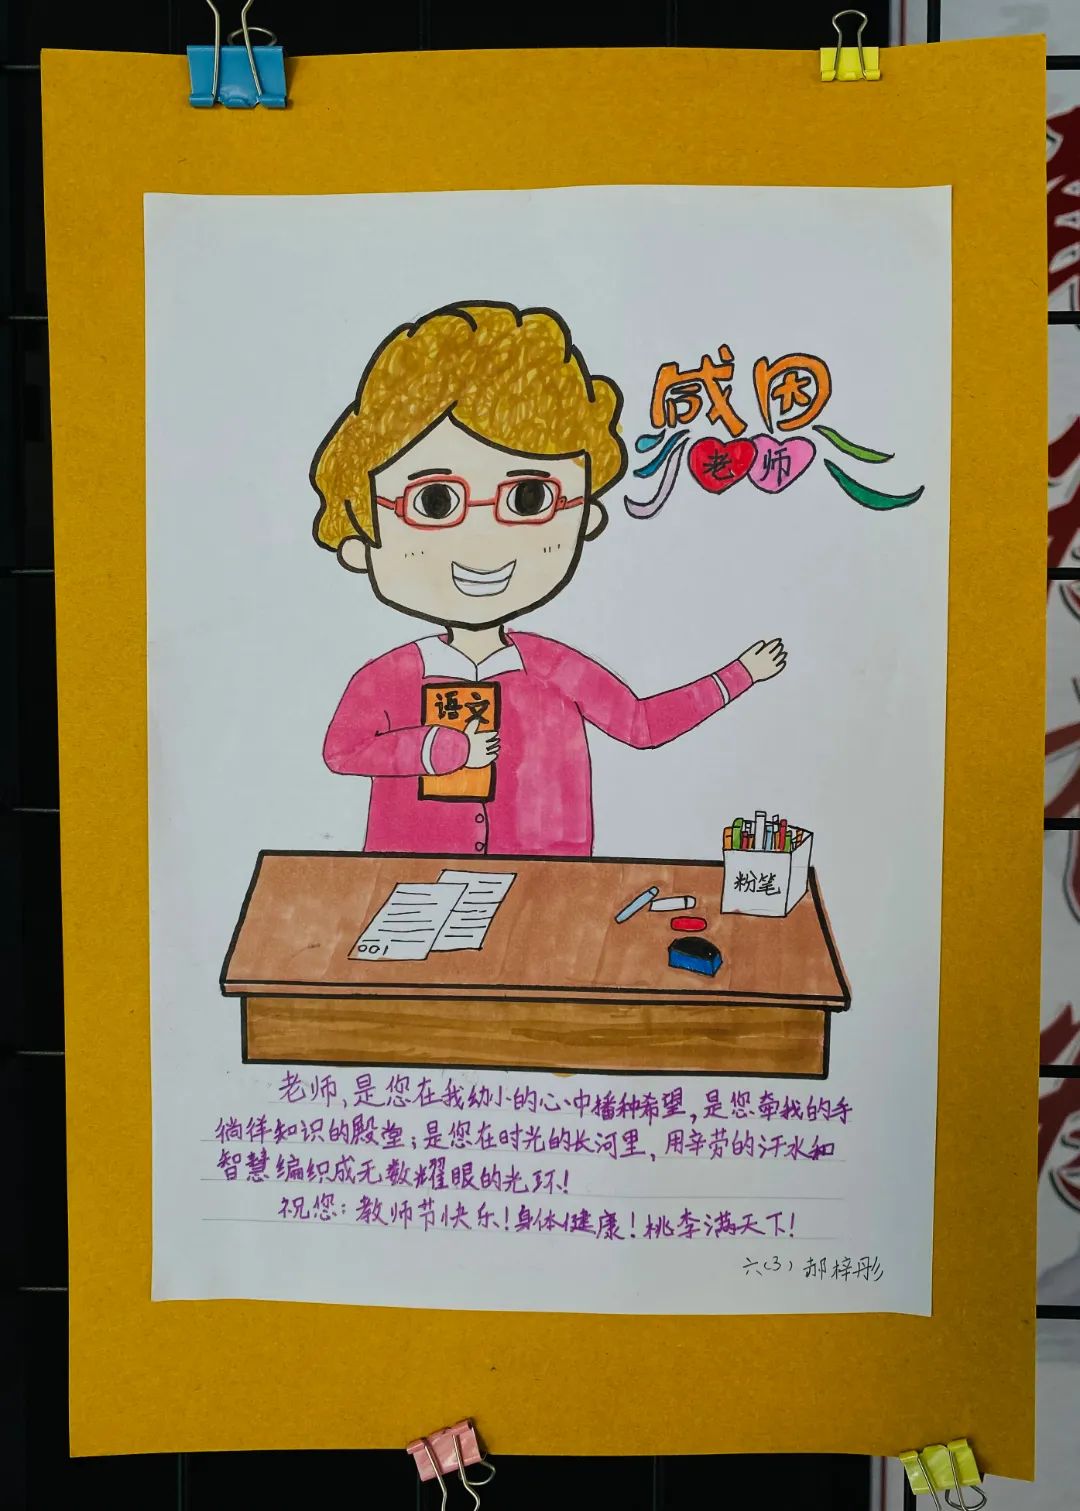 感恩
老师
语文
粉笔
001
老师，是您在我幼小的心中播种希望，是您牵我的手
徜徉知识的殿堂；是您在时光的长河里，用辛劳的汗水和
智慧编织成无数耀眼的光环！
祝您：教师节快乐！身体健康！桃李满天下！
六(3) 郝梓彤